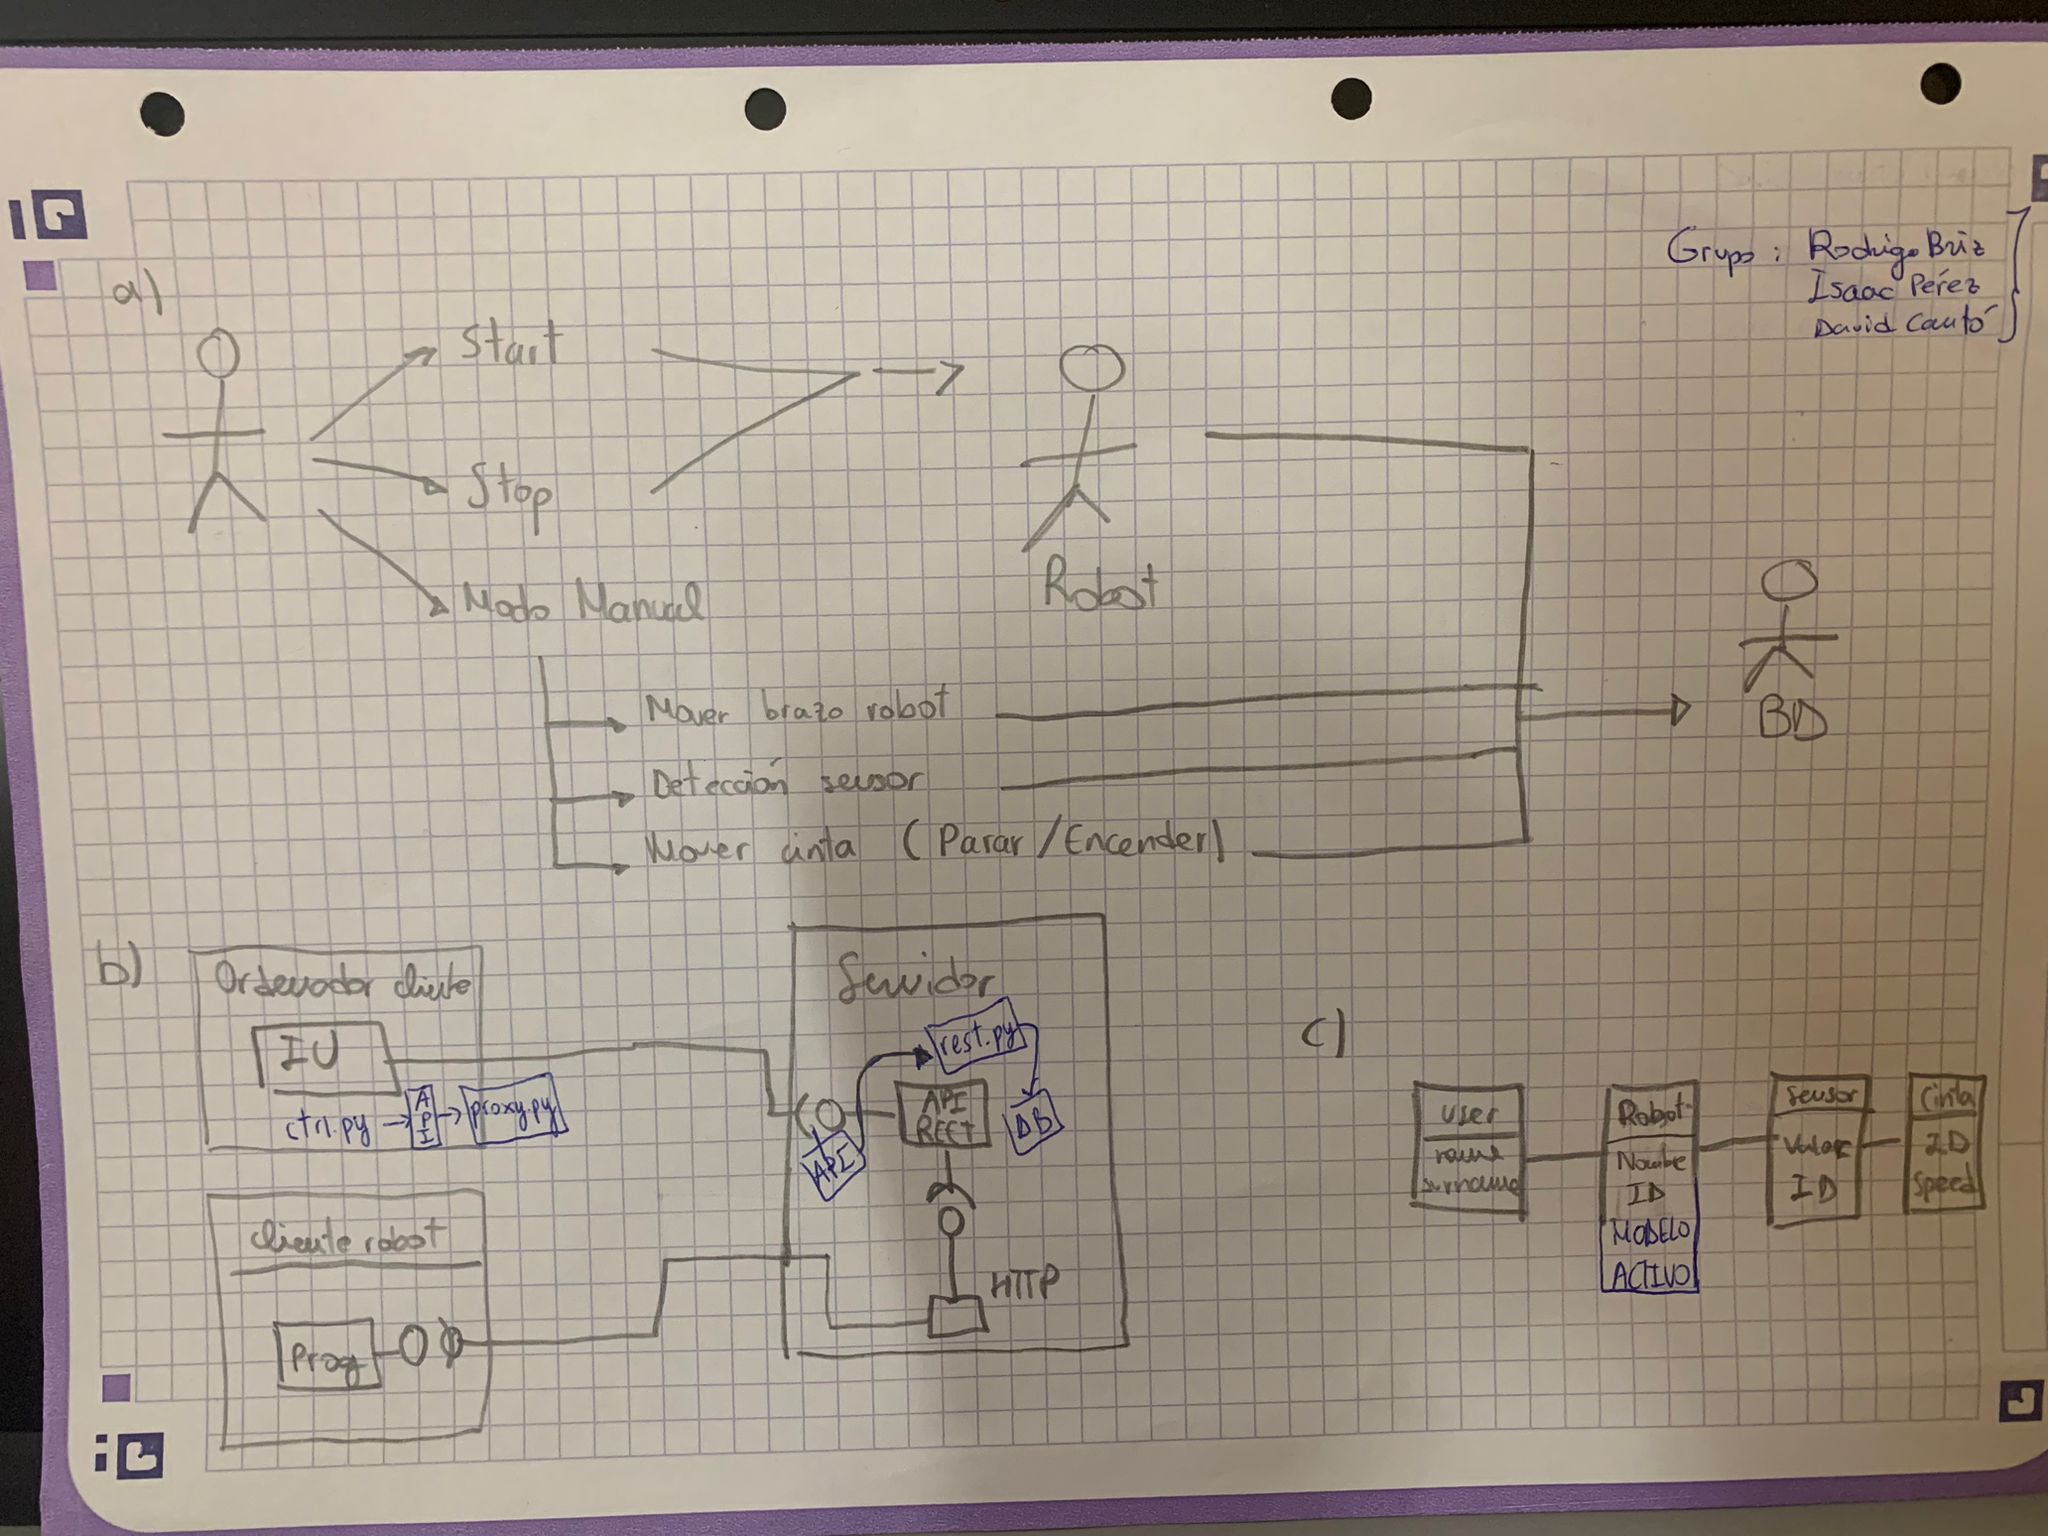 Grupo: Rodrigo Briz
Isaac Pérez
David Cantó
a)
Start
Stop
Modo Manual
Robot
BD
Mover brazo robot
Detección sensor
Mover cinta (Parar/Encender)
b)
Ordenador cliente
IU
ctrl.py
API
proxy.py
Servidor
rest.py
API
REST
DB
API
HTTP
cliente robot
Prog
c)
user
name
surname
Robot
Nombre
ID
MODELO
ACTIVO
Sensor
Valor
ID
Cinta
ID
Speed